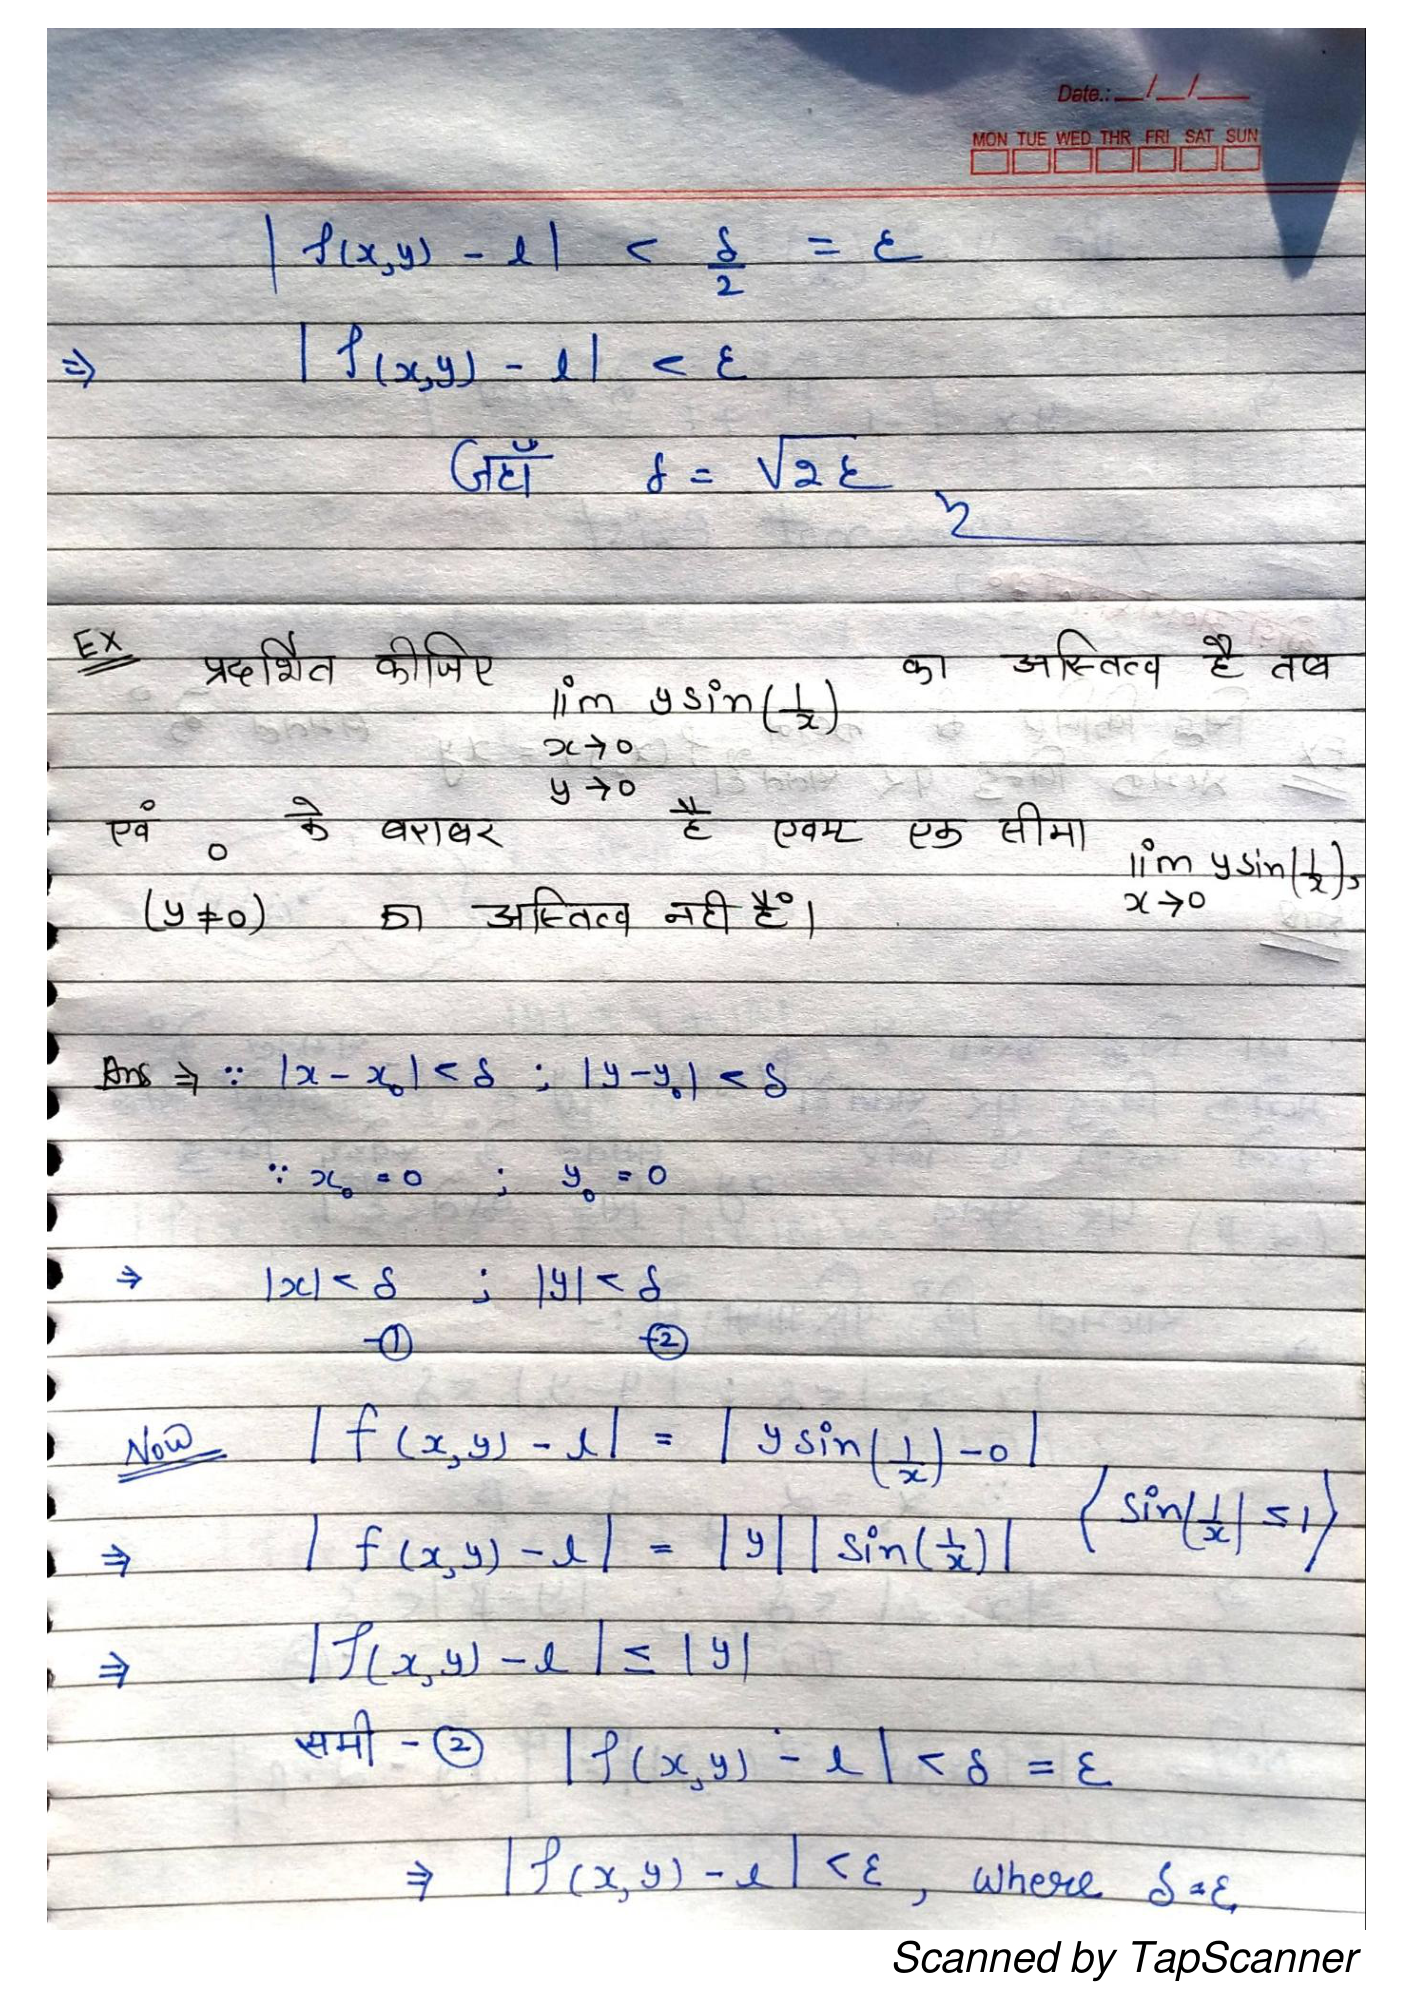 Date.: __/__/__
MON TUE WED THR FRI SAT SUN
|f(x,y) - l| < δ/2 = ε
⇒ |f(x,y) - l| < ε
जहाँ δ = √2ε
Ex प्रदर्शित कीजिए lim y sin(1/x) का अस्तित्व है तथ
x→0
y→0
एवं 0 के बराबर है एवम एक सीमा lim y sin(1/x),
x→0
(y≠0) का अस्तित्व नही हैं।
Ans ⇒ ∵ |x - x₀| < δ ; |y - y₀| < δ
∵ x₀ = 0 ; y₀ = 0
⇒ |x| < δ ; |y| < δ
-① -②
Now |f(x,y) - l| = |y sin(1/x) - 0|
⇒ |f(x,y) - l| = |y| |sin(1/x)| { sin|1/x| ≤ 1 }
⇒ |f(x,y) - l| ≤ |y|
समी - ② |f(x,y) - l| < δ = ε
⇒ |f(x,y) - l| < ε, where δ = ε
Scanned by TapScanner